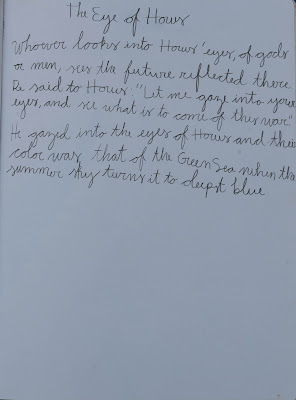 The Eye of Horus
Whoever looks into Horus' eyes, of gods
or men, sees the future reflected there
Re said to Horus: "Let me gaze into your
eyes, and see what is to come of this war."
He gazed into the eyes of Horus and their
color was that of the Green Sea when the
summer sky turns it to deepst blue